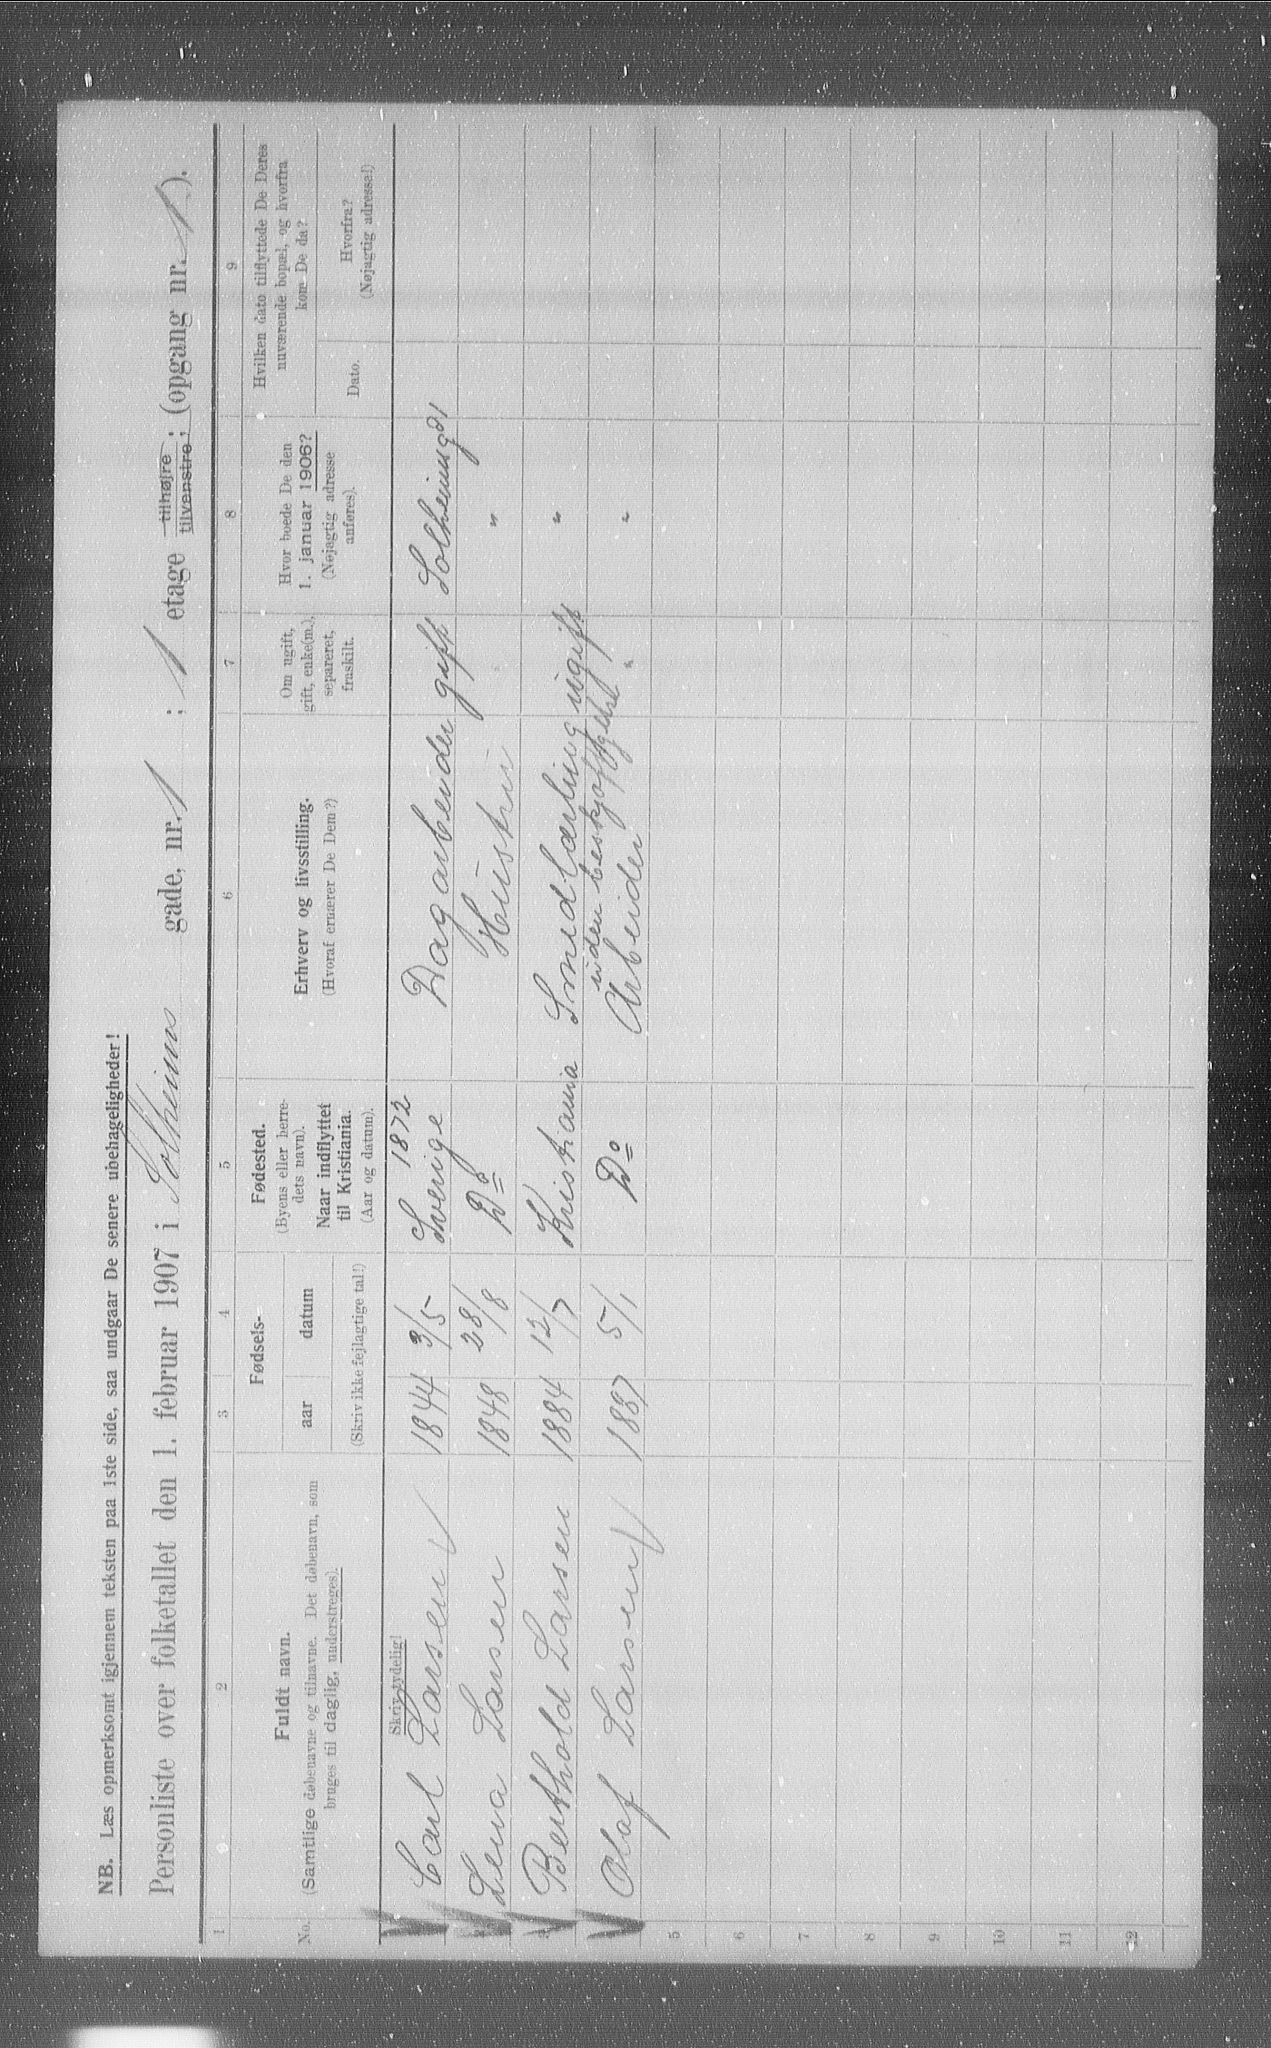 NB. Læs opmerksomt igjennem teksten paa 1ste side, saa undgaar De senere ubehageligheder!
Personliste over folketallet den 1. februar 1907 i Solheims gade, nr. 1 ; 1 etage tilhøjre ; tilvenstre ; (opgang nr. 1).
1 2 3 4 5 6 7 8 9
No.
Fuldt navn.
(Samtlige døbenavne og tilnavne. Det døbenavn, som
bruges til daglig, understreges).
Fødsels-
aar datum
(Skriv ikke fejlagtige tal!)
Fødested.
(Byens eller herre-
dets navn).
Naar indflyttet
til Kristiania.
(Aar og datum).
Erhverv og livsstilling.
(Hvoraf ernærer De Dem?)
Om ugift,
gift, enke(m.),
separeret,
fraskilt.
Hvor boede De den
1. januar 1906?
(Nøjagtig adresse
anføres).
Hvilken dato tilflyttede De Deres
nuværende bopæl, og hvorfra
kom De da?
Dato.
Hvorfra?
(Nøjagtig adresse!)
Skriv tydelig!
1872
Carl Larsen 1844 3/5 Sverige Dagarbeider gift Solheimsg 1
Lena Larsen 1848 28/8 Do Hustru "
3 Berthold Larsen 1884 12/7 Kristiania Smedlærling ugift "
uden beskjæftigelse
Olaf Larsen 1887 5/1 Do Arbeider " "
5
6
7
8
9
10
11
12